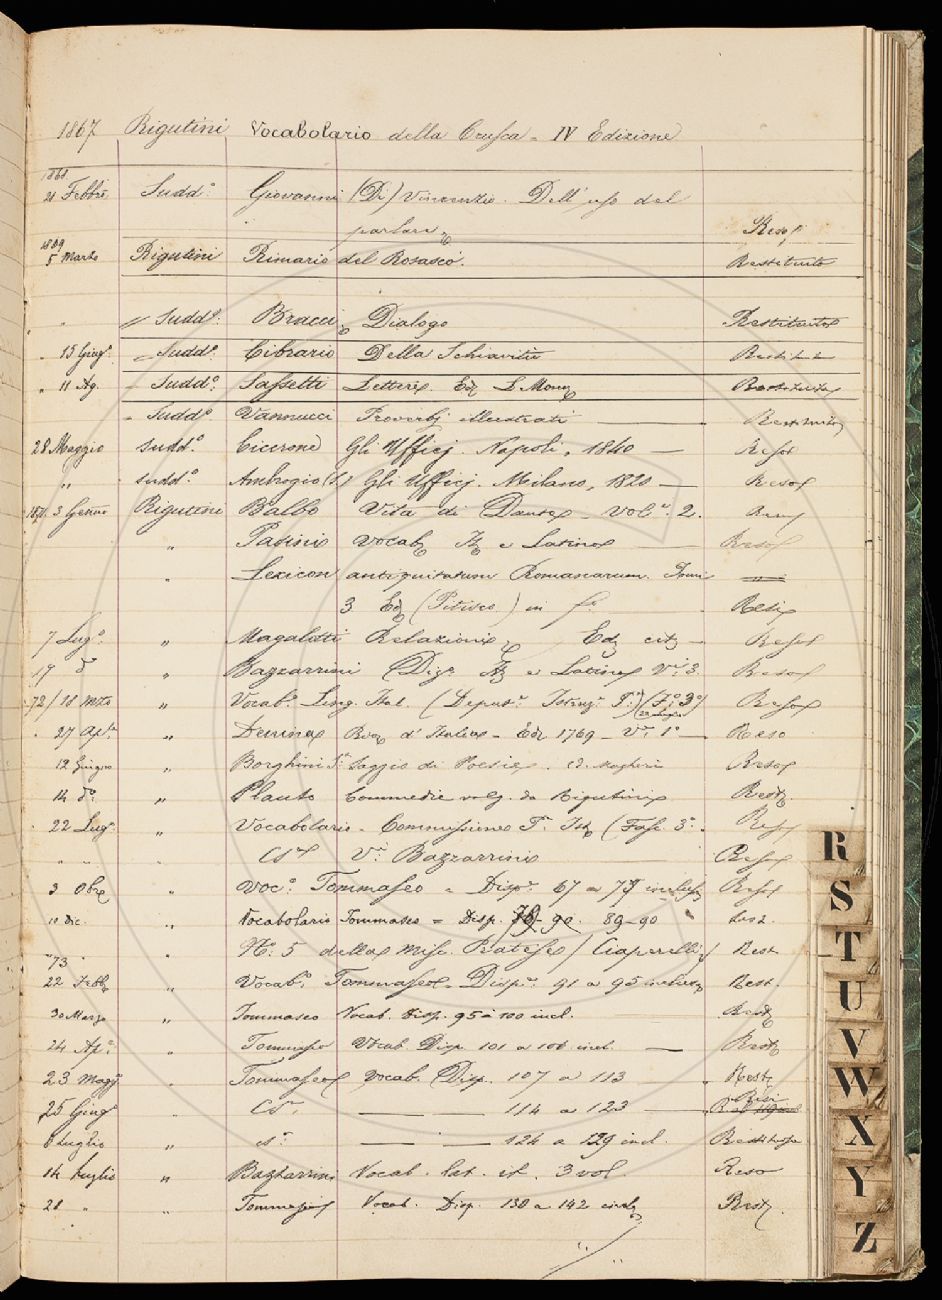 1867 Rigutini Vocabolario della Crusca - IV Edizione
1868
21 Febbr. Sudd.º Giovanni (Di) Vincenzio. Dell' uso del
parlare. Reso
1869
5 Marzo Rigutini Rimario del Rosasco. Restituito
" Sudd.º Bracci Dialogo Restituito
" 15 Giug.º Sudd.º Cibrario Della Schiavitù Restituito
" 11 Ag. Sudd.º Sassetti Lettere. Ediz. L. Monn. Restituito
Sudd.º Vannucci Proverbj illustrati — Restituito
28 Maggio Sudd.º Cicerone Gli Ufficj. Napoli, 1840 — Reso
" Sudd.º Ambrogio (S.) Gli Ufficj. Milano, 1820 — Reso
3 Genno Rigutini Balbo Vita di Dante - Vol.i 2. Reso
" Pasini Vocab. It. e Latino — Reso
" Lexicon antiquitatum Romanarum. Tomi
3 Ediz. (Pitisco) in fo. Reso
7 Lug.º " Magalotti Relazioni, Ediz. cit. — Reso
19 dº " Bazzarrini Diz. It. e Latino V.i 3. Reso
72/18 Mzo " Vocab.º Ling. Ital. Reso
27 Ap.le " Denina Riv. d'Italia - Ediz. 1769 - V.e 1º — Reso
12 Giugno " Borghini Saggio di Poesie, Reso
14 dº " Plauto Commedie volg. da Rigutini Rest.
22 Lug.º " Vocabolario - (Fasc. 3º. Reso
" " C.s. V.i Bazzarrini Reso
3 Obre " Voc.º Tommaseo - Disp.e 67 a inclus. Reso
10 Dic. " Vocabolario Tommaseo = Disp. 89-90
" " Nº 5 della Misc. Pratese (Ciaperelli) Rest
73
22 Febb. " Vocab.º Tommaseo - Disp.e 91 a 95 inclus. Rest.
30 Marzo " Tommaseo Vocab. Disp. 95 a 100 incl. Rest.
24 Ap.e " Tommaseo Vocab. Disp. 101 a 106 incl. — Rest.
23 Magg. " Tommaseo Vocab. Disp. 107 a 113 Rest.
25 Giug.º " C.s. — 114 a 123 —
8 Luglio " C.s. — 124 a 129 incl. Restituito
14 Luglio " Bazzarrini Vocab. lat. it. 3 vol Reso
21 " " Tommaseo Vocab. Disp. 130 a 142 incl. Rest.
R
S
T
U
V
W
X
Y
Z